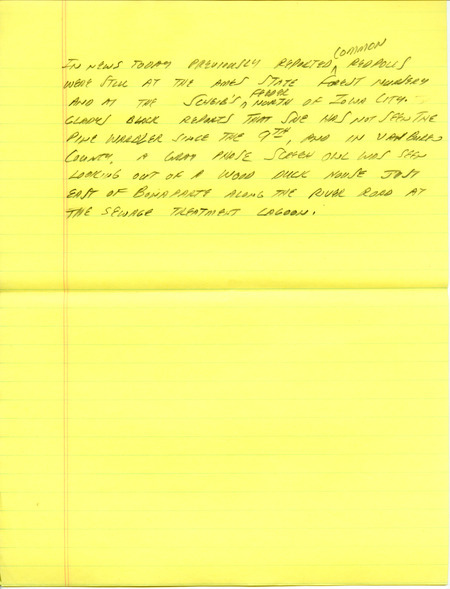 COMMON
IN NEWS TODAY PREVIOUSLY REPORTED ^ REDPOLLS
WERE STILL AT THE AMES STATE FOREST NURSERY
FEEDER
AND AT THE SCHEIB'S ^ NORTH OF IOWA CITY.
GLADYS BLACK REPORTS THAT SHE HAS NOT SEEN THE
PINE WARBLER SINCE THE 9TH, AND IN VAN BUREN
COUNTY, A GRAY PHASE SCREECH OWL WAS SEEN
LOOKING OUT OF A WOOD DUCK HOUSE JUST
EAST OF BONAPARTE ALONG THE RIVER ROAD AT
THE SEWAGE TREATMENT LAGOON.